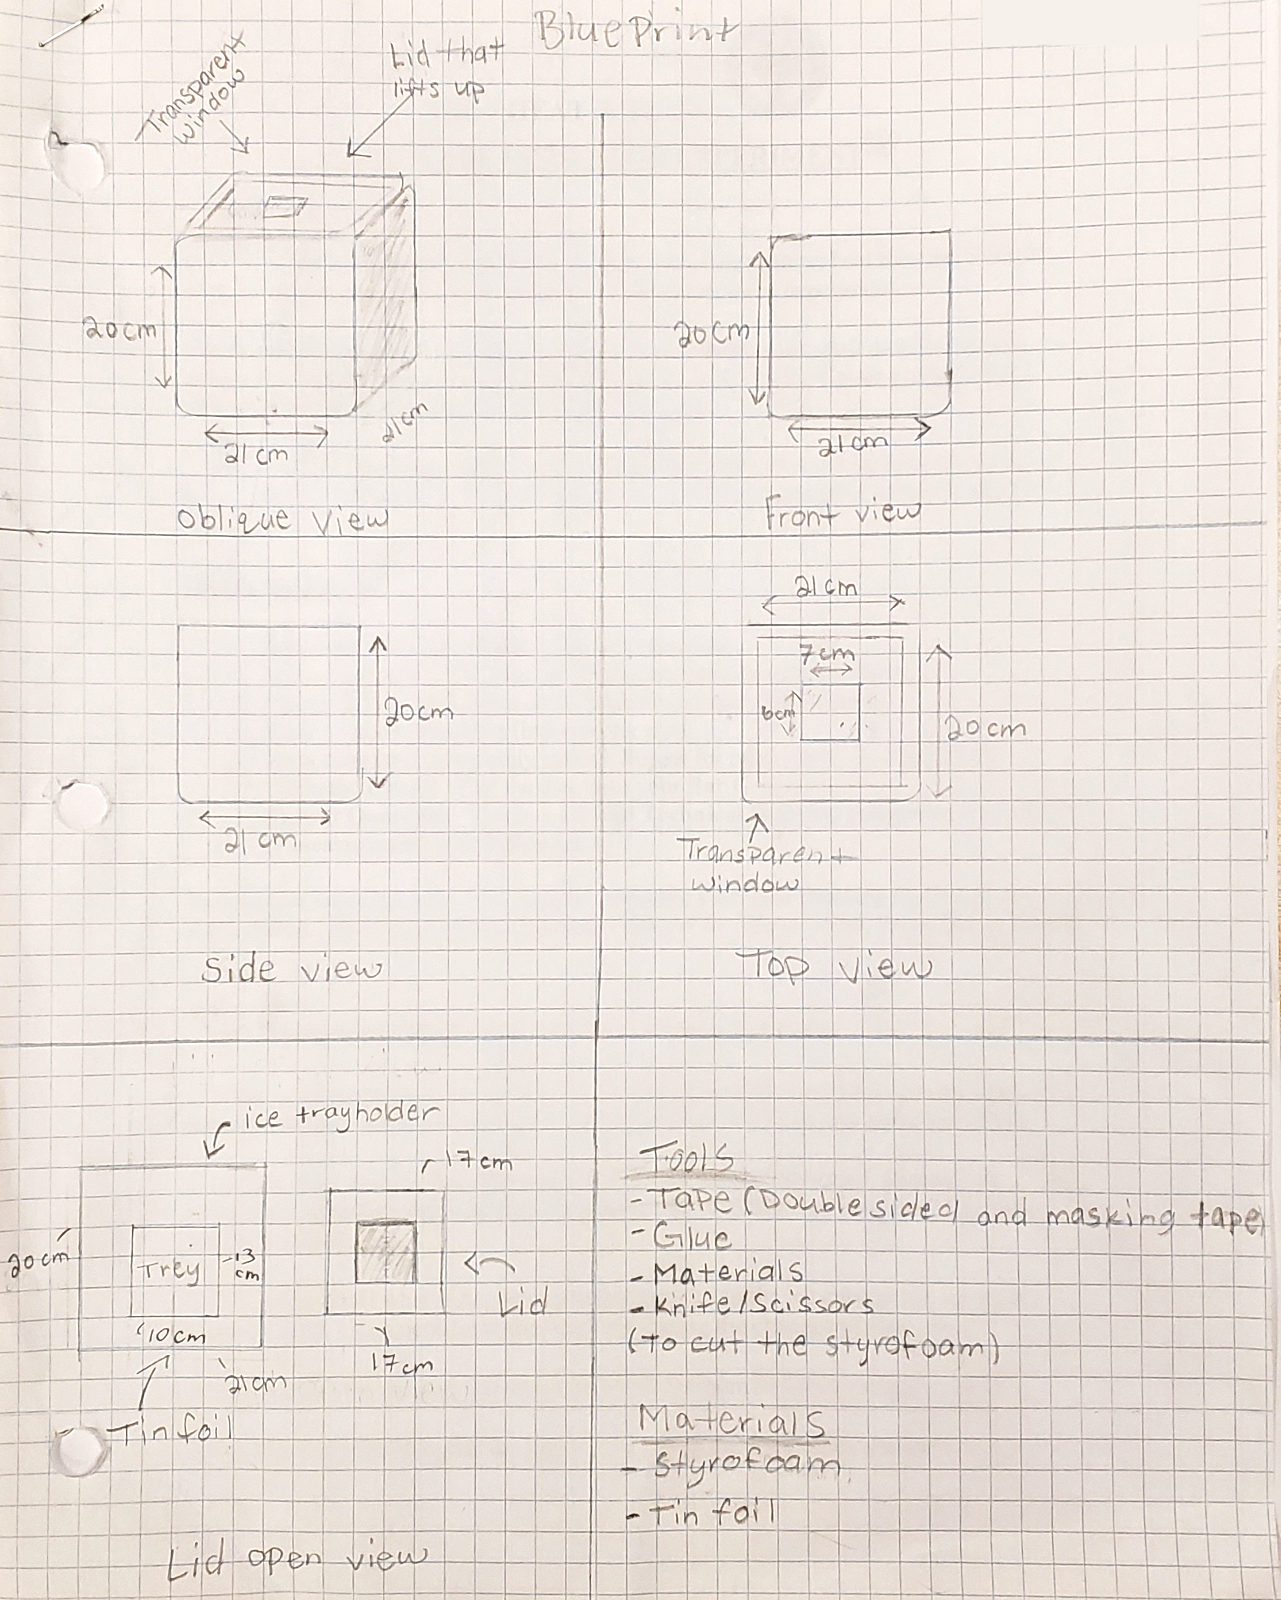 BluePrint
Transparent
window
Lid that
lifts up
20cm
21cm
21cm
Oblique view
20cm
21cm
Front view
20cm
21cm
Side view
21cm
7cm
6cm
20cm
Transparent
window
Top view
ice trayholder
20cm
Trey
13
cm
10cm
21cm
Tin foil
17cm
Lid
17cm
Lid open view
Tools
- Tape (Double sided and masking tape)
- Glue
- Materials
- Knife/Scissors
(To cut the styrofoam)
Materials
- Styrofoam
- Tin foil